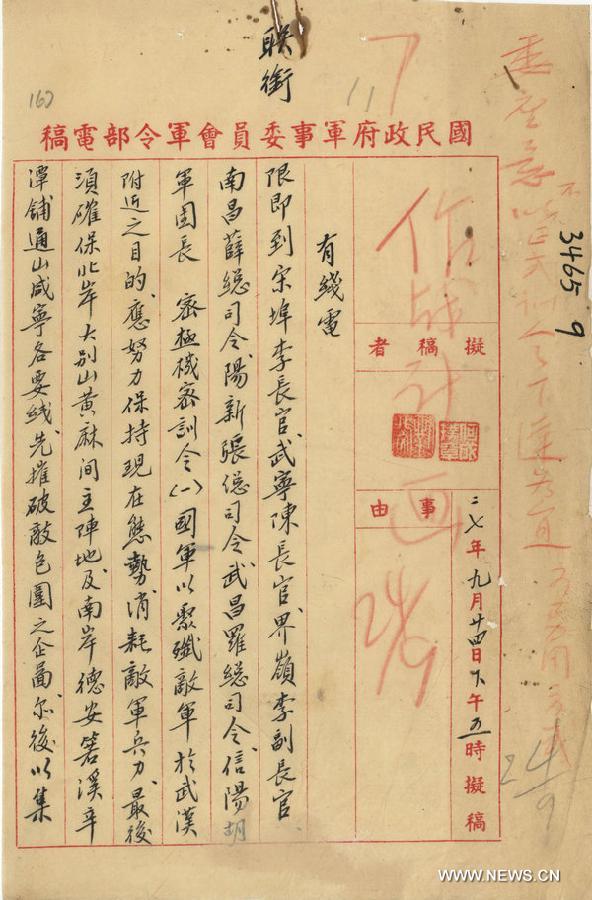 162
聯銜
11
3465 9
國民政府軍事委員會軍令部電稿
作戰計画
24/9
擬稿者
事由
二七年九月廿四日下午五時擬稿
24/9
有綫電
限即到宋埠李長官、武寧陳長官、界嶺李副長官、
南昌薛總司令、陽新張總司令、武昌羅總司令、信陽胡
軍團長 密極機密訓令(一)國軍以聚殲敵軍於武漢
附近之目的、應努力保持現在態勢、消耗敵軍兵力、最後
須確保北岸大別山黃麻間主陣地、及南岸德安箬溪辛
潭舖通山咸寧各要綫、先摧破敵包圍之企圖、尔後以集
WWW.NEWS.CN